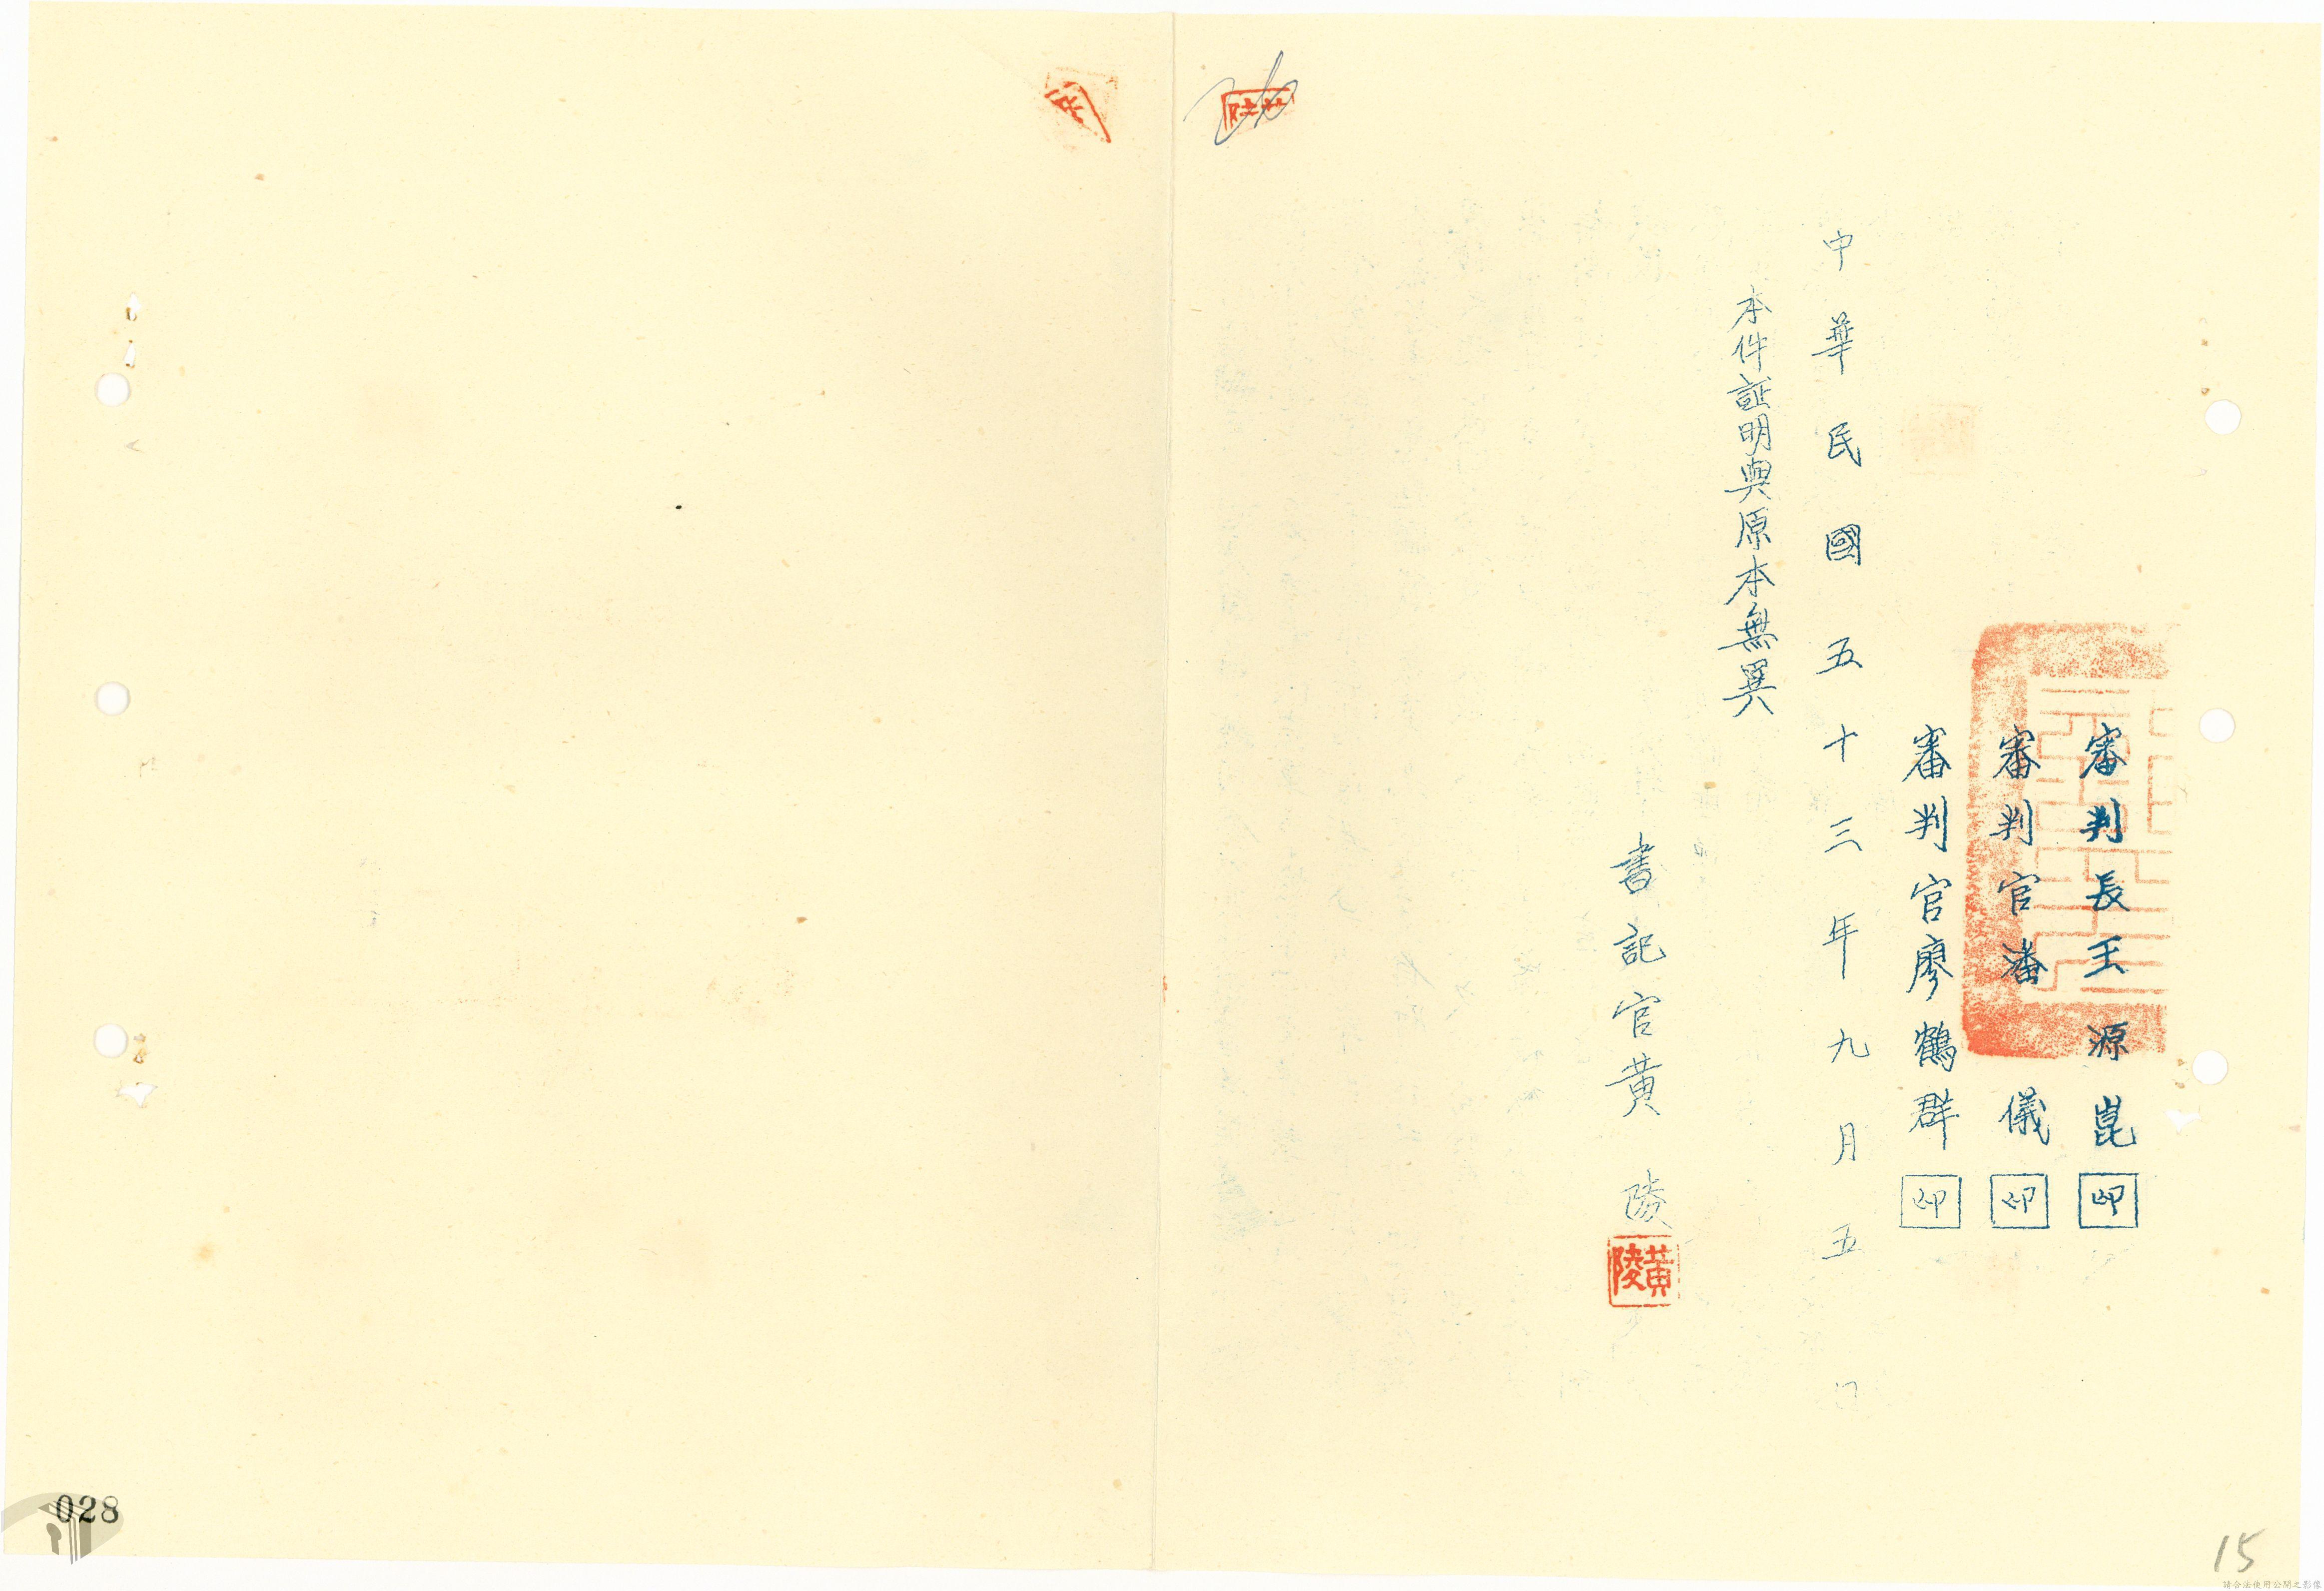 審判長王源崑印
審判官潘儀印
審判官廖鶴群印
中華民國五十三年九月五日
本件証明與原本無異
書記官黃陵
黃陵
028
15
請合法使用公開之影像